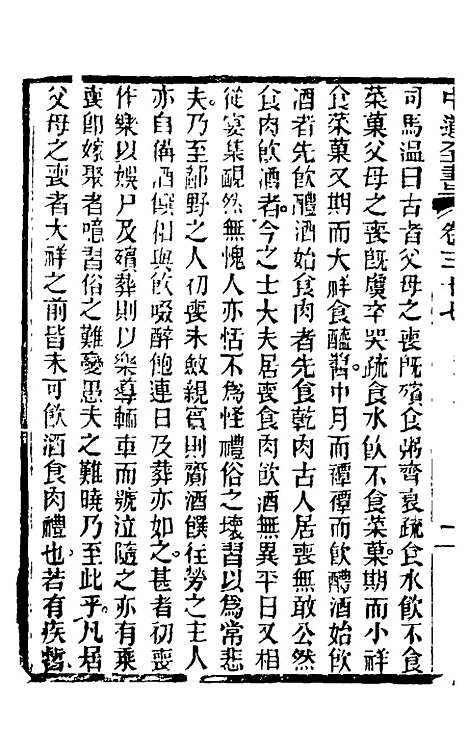 中道全書 卷三十七
司馬温曰古者父母之喪旣殯食粥齊衰疏食水飲不食
菜菓父母之喪旣虞卒哭疏食水飲不食菜菓期而小祥
食菜菓又期而大祥食醯醬中月而禫禫而飲醴酒始飲
酒者先飲醴酒始食肉者先食乾肉古人居喪無敢公然
食肉飲酒者今之士大夫居喪食肉飲酒無異平日又相
從宴集靦然無愧人亦恬不為怪禮俗之壞習以為常悲
夫乃至鄙野之人初喪未斂親賓則齎酒饌往勞之主人
亦自備酒饌相與飲啜醉飽連日及葬亦如之甚者初喪
作樂以娛尸及殯葬則以樂導輀車而號泣隨之亦有乘
喪卽嫁聚者噫習俗之難變愚夫之難曉乃至此乎凡居
父母之喪者大祥之前皆未可飲酒食肉禮也若有疾暫